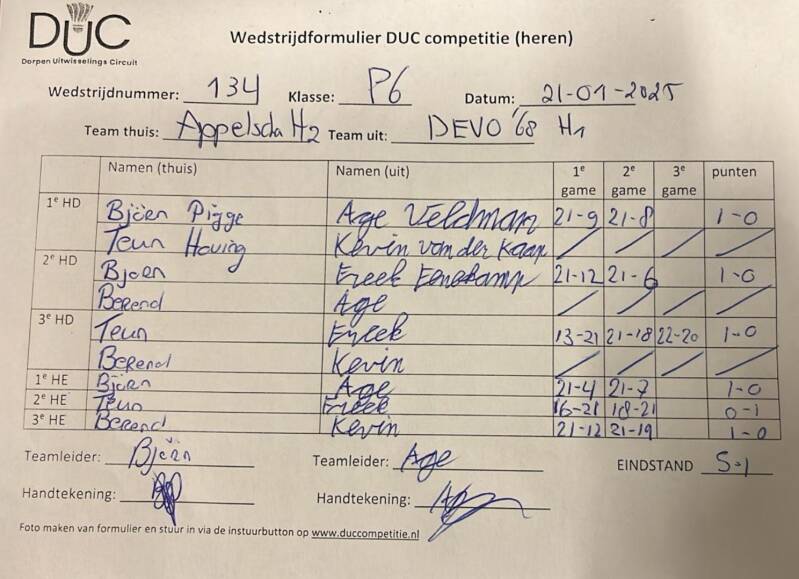 DUC
Dorpen Uitwisselings Circuit
Wedstrijdformulier DUC competitie (heren)
Wedstrijdnummer: 134 Klasse: P6 Datum: 21-01-2025
Team thuis: Appelscha H2 Team uit: DEVO '68 H1
Namen (thuis) Namen (uit) 1e game 2e game 3e game punten
1e HD Björn Pigge Age Veldman 21-9 21-8 1-0
Teun Houing Kevin van der Kaap / / / /
2e HD Bjorn Freek 21-12 21-6 1-0
Berend Age / / / /
3e HD Teun Freek 13-21 21-18 22-20 1-0
Berend Kevin / / / /
1e HE Björn Age 21-4 21-7 1-0
2e HE Teun Freek 16-21 18-21 0-1
3e HE Berend Kevin 21-12 21-19 1-0
Teamleider: Björn Teamleider: Age EINDSTAND 5-1
Handtekening: Handtekening:
Foto maken van formulier en stuur in via de instuurbutton op www.duccompetitie.nl